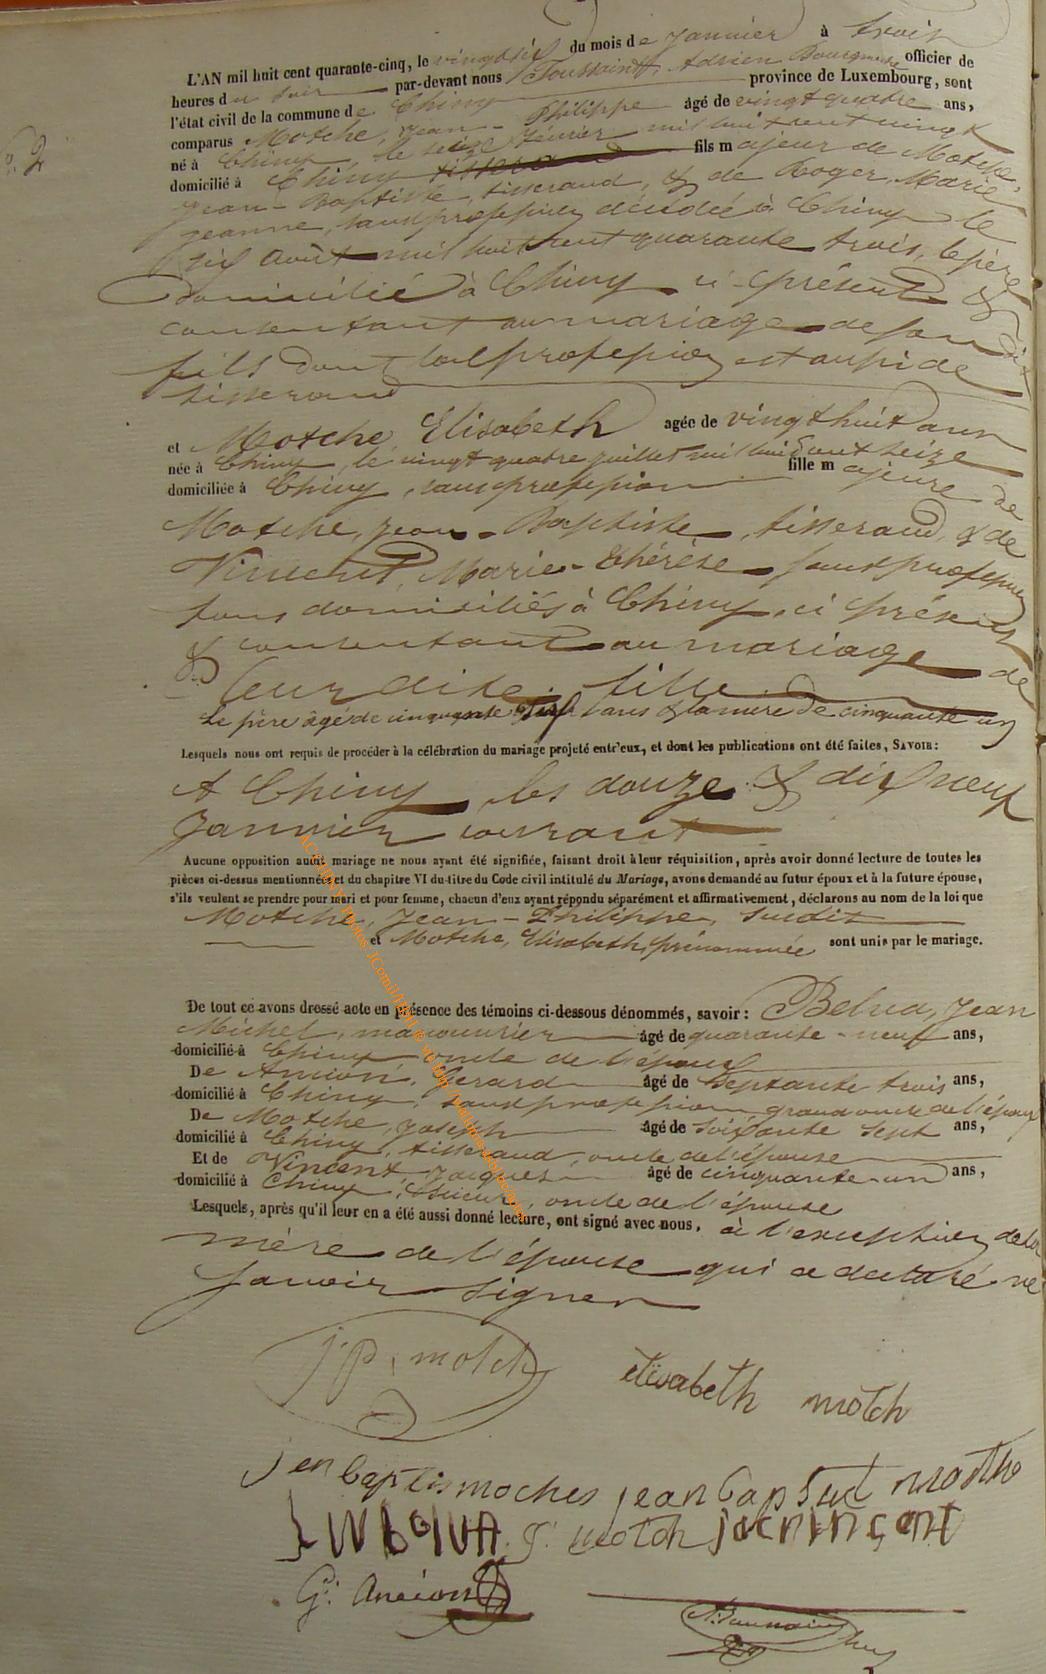 N° 2
L'AN mil huit cent quarante-cinq, le vingt six du mois de janvier à trois
heures du soir par-devant nous Toussaint, Adrien officier de
l'état civil de la commune de Chiny province de Luxembourg, sont
comparus Motche, Jean-Philippe âgé de vingt quatre ans,
né à Chiny, le seize février mil huit cent vingt
domicilié à Chiny tisserand fils majeur de Motche,
Jean-Baptiste, tisserand, & de Roger, Marie
jeanne, sans profession, décédée à Chiny le
six août mil huit cent quarante trois, le père
domicilié à Chiny ci-présent &
consentant au mariage de son dit
fils dont la profession est aussi de
tisserand
et Motche, Elisabeth agée de vingt huit ans
née à Chiny, le vingt quatre juillet mil huit cent seize
domiciliée à Chiny, sans profession fille majeure de
Motche, jean-Baptiste, tisserand, & de
Vincent, Marie-Thérèse sans profession
tous domiciliés à Chiny, ci présents
& consentant au mariage de
leur dite fille
Le père âgé de cinquante ans & la mère de cinquante un
Lesquels nous ont requis de procéder à la célébration du mariage projeté entr'eux, et dont les publications ont été faites, SAVOIR:
A Chiny les douze & dix neuf
janvier courant
Aucune opposition audit mariage ne nous ayant été signifiée, faisant droit à leur réquisition, après avoir donné lecture de toutes les
pièces ci-dessus mentionnées et du chapitre VI du titre du Code civil intitulé du Mariage, avons demandé au futur époux et à la future épouse,
s'ils veulent se prendre pour mari et pour femme, chacun d'eux ayant répondu séparément et affirmativement, déclarons au nom de la loi que
Motche, Jean-Philippe, susdit
et Motche, Elisabeth, prénommée sont unis par le mariage.
De tout ce avons dressé acte en présence des témoins ci-dessous dénommés, savoir: Belva, Jean
Michel, manouvrier âgé de quarante-neuf ans,
domicilié à Chiny oncle de l'époux
De Ancion, Gerard âgé de septante trois ans,
domicilié à Chiny, sans profession, grand oncle de l'époux
De Motche, Joseph âgé de soixante sept ans,
domicilié à Chiny, tisserand, oncle de l'épouse
Et de Vincent Jacques âgé de cinquante-un ans,
domicilié à Chiny, oncle de l'épouse
Lesquels, après qu'il leur en a été aussi donné lecture, ont signé avec nous, à l'exception de la
mère de l'épouse qui a declaré ne
savoir signer
j p, motch
elisabeth motch
jean baptis moches jean baptist motche
J. motch
G: Ancion